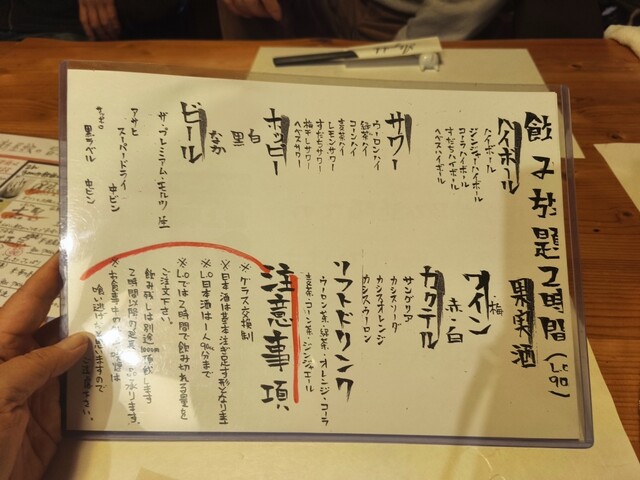 飲み放題2時間(L.O90)
ハイボール
ハイボール
ジンジャーハイボール
コーラハイボール
すだちハイボール
ヘベスハイボール
サワー
ウーロンハイ
緑茶ハイ
コーン茶ハイ
麦茶ハイ
レモンサワー
すだちサワー
梅干しサワー
ヘベスサワー
ホッピー
白
黒
なか
ビール
ザ・プレミアム・モルツ 生
アサヒ
スーパードライ 中ビン
サッポロ
黒ラベル 中ビン
果実酒
梅
ワイン
赤・白
カクテル
サングリア
カシスソーダ
カシスオレンジ
カシスウーロン
ソフトドリンク
ウーロン茶・緑茶・オレンジ・コーラ
麦茶・コーン茶・ジンジャエール
注意事項
※グラス交換制
※日本酒は基本注ぎ足す形となります
※L.O日本酒は一人90mlまで
※L.Oでは2時間で飲み切れる量を
ご注文下さい。
飲み残しは別途1000円頂戴します
2時間以降の
承ります。
※お食事中の
喰い逃げ
思いますので